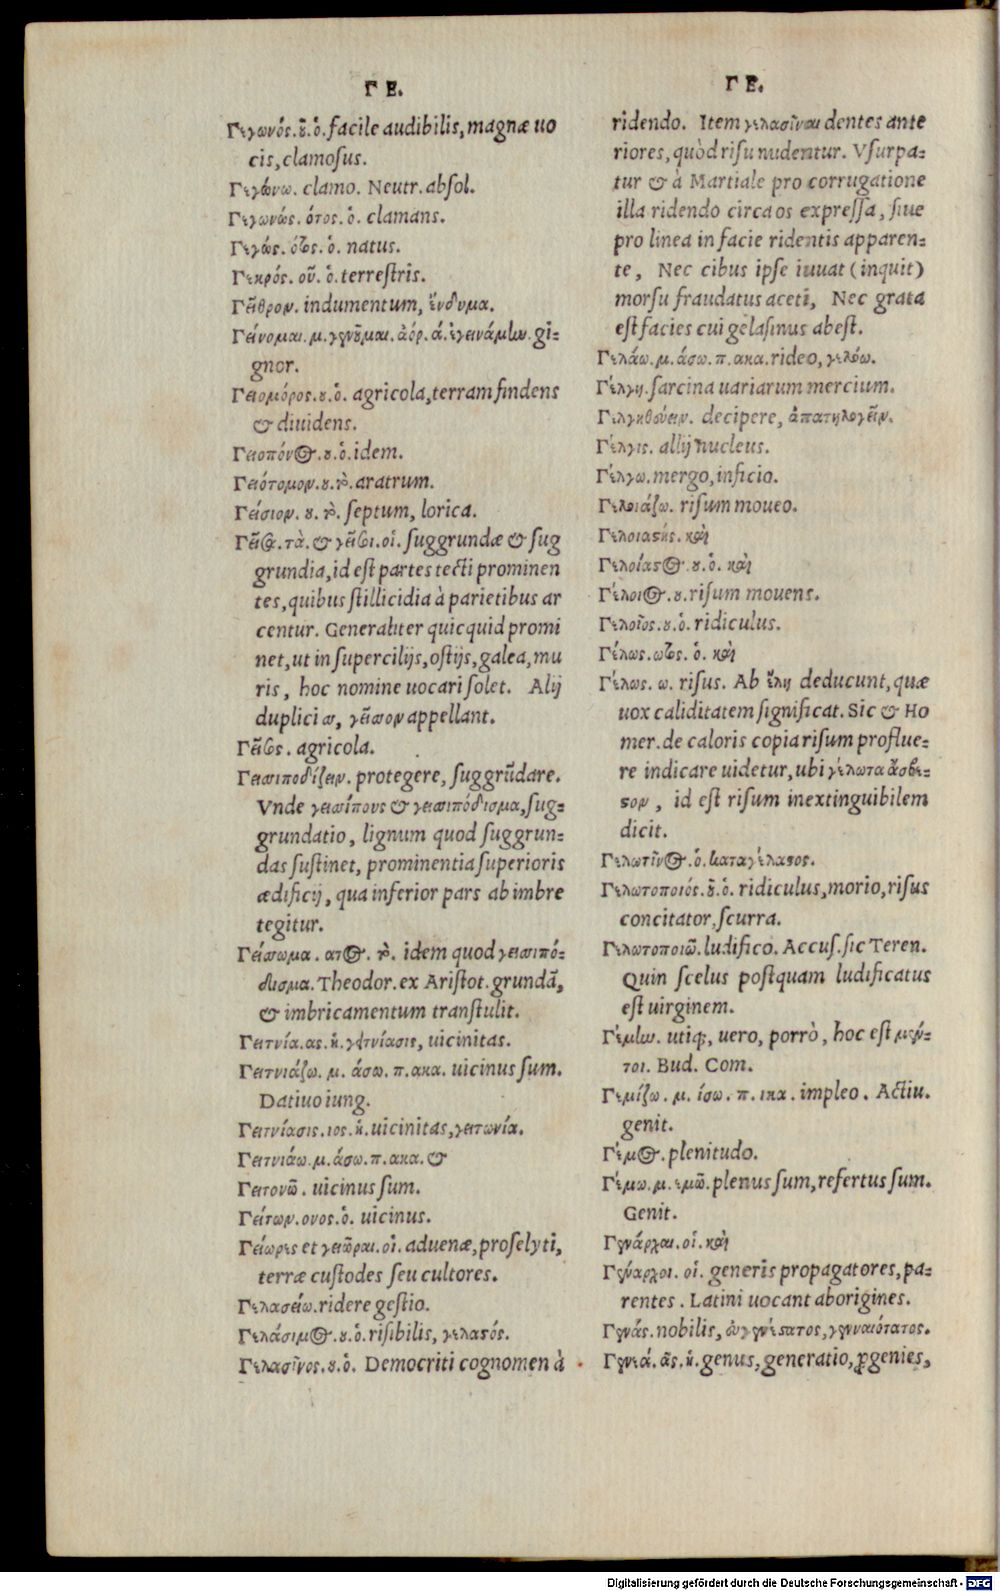 ΓΕ.
Γεγωνός.οῦ.ὁ.facile audibilis, magnæ uo
cis, clamosus.
Γεγώνω. clamo. Neutr. absol.
Γεγωνώς. ότος. ὁ. clamans.
Γεγώς. ότος. ὁ. natus.
Γεηρός. οῦ. ὁ. terrestris.
Γεῖθρον. indumentum, ἔνδυμα.
Γείνομαι. μ. γενοῦμαι. ἀόρ. ά. ἐγεινάμην. gi-
gnor.
Γειομόρος.ου.ὁ. agricola, terram findens
& diuidens.
Γειοπόνος.ου.ὁ. idem.
Γειότομον.ου.τὸ. aratrum.
Γείσιον. ου. τὸ. septum, lorica.
Γεῖσα. τὰ. & γεῖσοι. οἱ. suggrundæ & sug
grundia, id est partes tecti prominen
tes, quibus stillicidia à parietibus ar
centur. Generaliter quicquid promi
net, ut in supercilijs, ostijs, galea, mu
ris, hoc nomine uocari solet. Alij
duplici σσ, γεῖσσον appellant.
Γεῖσος. agricola.
Γεισιποδίζειν. protegere, suggrūdare.
Vnde γεισίπους & γεισιπόδισμα, sug-
grundatio, lignum quod suggrun-
das sustinet, prominentia superioris
ædificij, qua inferior pars ab imbre
tegitur.
Γείσωμα. ατος. τὸ. idem quod γεισιπό-
δισμα. Theodor. ex Aristot. grundā,
& imbricamentum transtulit.
Γειτνία. ας. ἡ. γειτνίασις, uicinitas.
Γειτνιάζω. μ. άσω. π. ακα. uicinus sum.
Datiuo iung.
Γειτνίασις. ιος. ἡ. uicinitas, γειτονία.
Γειτνιάω. μ. άσω. π. ακα. &
Γειτονῶ. uicinus sum.
Γείτων. ονος. ὁ. uicinus.
Γείωρες et γειῶραι. οἱ. aduenæ, proselyti,
terræ custodes seu cultores.
Γελασείω. ridere gestio.
Γελάσιμος. ου. ὁ. risibilis, γελαστός.
Γελασῖνος. ου. ὁ. Democriti cognomen à
ΓΕ.
ridendo. Item γελασῖναι dentes ante
riores, quòd risu nudentur. Vsurpa-
tur & à Martiale pro corrugatione
illa ridendo circa os expressa, siue
pro linea in facie ridentis apparen-
te, Nec cibus ipse iuuat (inquit)
morsu fraudatus aceti, Nec grata
est facies cui gelasinus abest.
Γελάω. μ. άσω. π. ακα. rideo, γελόω.
Γέλγη. sarcina uariarum mercium.
Γελγηθεύειν. decipere, ἀπατηλογεῖν.
Γέλγις. allij nucleus.
Γέλγω. mergo, inficio.
Γελοιάζω. risum moueo.
Γελοιαστής. καὶ
Γελοίαστος. ου. ὁ. καὶ
Γέλοιος. ου. risum mouens.
Γελοῖος. ου. ὁ. ridiculus.
Γέλως. ωτος. ὁ. καὶ
Γέλως. ω. risus. Ab ἕλη deducunt, quæ
uox caliditatem significat. Sic & Ho
mer. de caloris copia risum proflue-
re indicare uidetur, ubi γέλωτα ἄσβε-
στον, id est risum inextinguibilem
dicit.
Γελωτῖνος. ὁ. καταγέλαστος.
Γελωτοποιός. οῦ. ὁ. ridiculus, morio, risus
concitator, scurra.
Γελωτοποιῶ. ludifico. Accus. sic Teren.
Quin scelus postquam ludificatus
est uirginem.
Γέμην. utiq;, uero, porrò, hoc est μέν-
τοι. Bud. Com.
Γεμίζω. μ. ίσω. π. ικα. impleo. Actiu.
genit.
Γέμος. plenitudo.
Γέμω. μ. εμῶ. plenus sum, refertus sum.
Genit.
Γενάρχαι. οἱ. καὶ
Γενάρχοι. οἱ. generis propagatores, pa-
rentes. Latini uocant aborigines.
Γενάς. nobilis, εὐγενέστατος, γενναιότατος.
Γενεά. ᾶς. ἡ. genus, generatio, ꝓgenies,
Digitalisierung gefördert durch die Deutsche Forschungsgemeinschaft - DFG